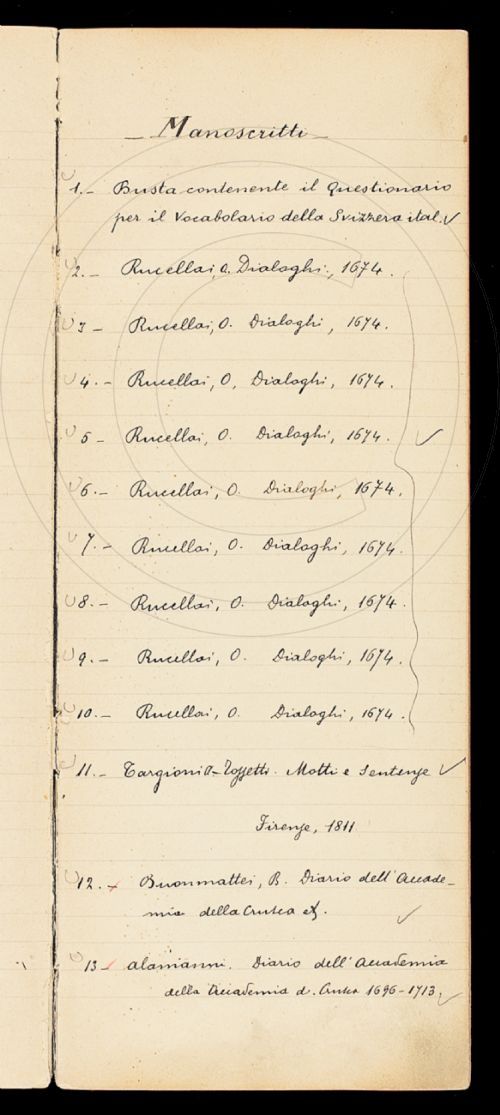 Manoscritti
1.- Busta contenente il Questionario
per il Vocabolario della Svizzera ital.
2.- Rucellai, O. Dialoghi, 1674.
3 - Rucellai, O. Dialoghi, 1674.
4.- Rucellai, O, Dialoghi, 1674.
5 - Rucellai, O. Dialoghi, 1674.
6.- Rucellai, O. Dialoghi, 1674.
7.- Rucellai, O. Dialoghi, 1674.
8.- Rucellai, O. Dialoghi, 1674.
9.- Rucellai, O. Dialoghi, 1674.
10.- Rucellai, O. Dialoghi, 1674.
11.- Targioni Tozzetti. Motti e Sentenze
Firenze, 1811
12.- Buonmattei, B. Diario dell'Accade-
mia della Crusca
13- Alamanni. Diario dell'Accademia
della Accademia d. Crusca 1696-1713.